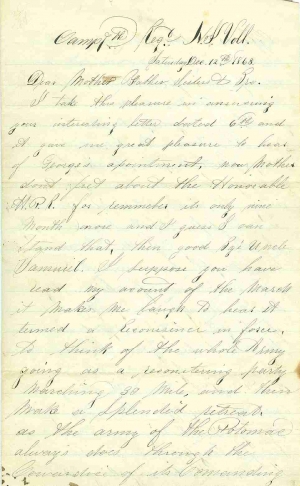 Camp 7th Reg. N.J. Voll.
Saturday Dec. 12th 1863
Dear Mother Father Sister & Bro.
I take this pleasure in answering
your interesting letter dated 6th and
it gave me great pleasure to hear
of George's apointment, now Mother
dont fret about the Honorable
for remmeber its only nine
Month more and I guess I can
stand that, then good By Uncle
Samuel. I suppose you have
read my acount of the March
it makes me laugh to hear it
termed a reconsience in force.
to think of the whole Army
going as a reconitering party
Marching 30 Mile, and then
make a splendid retreat
as the army of the Potomac
always does through the
Cowardice of its Comanding